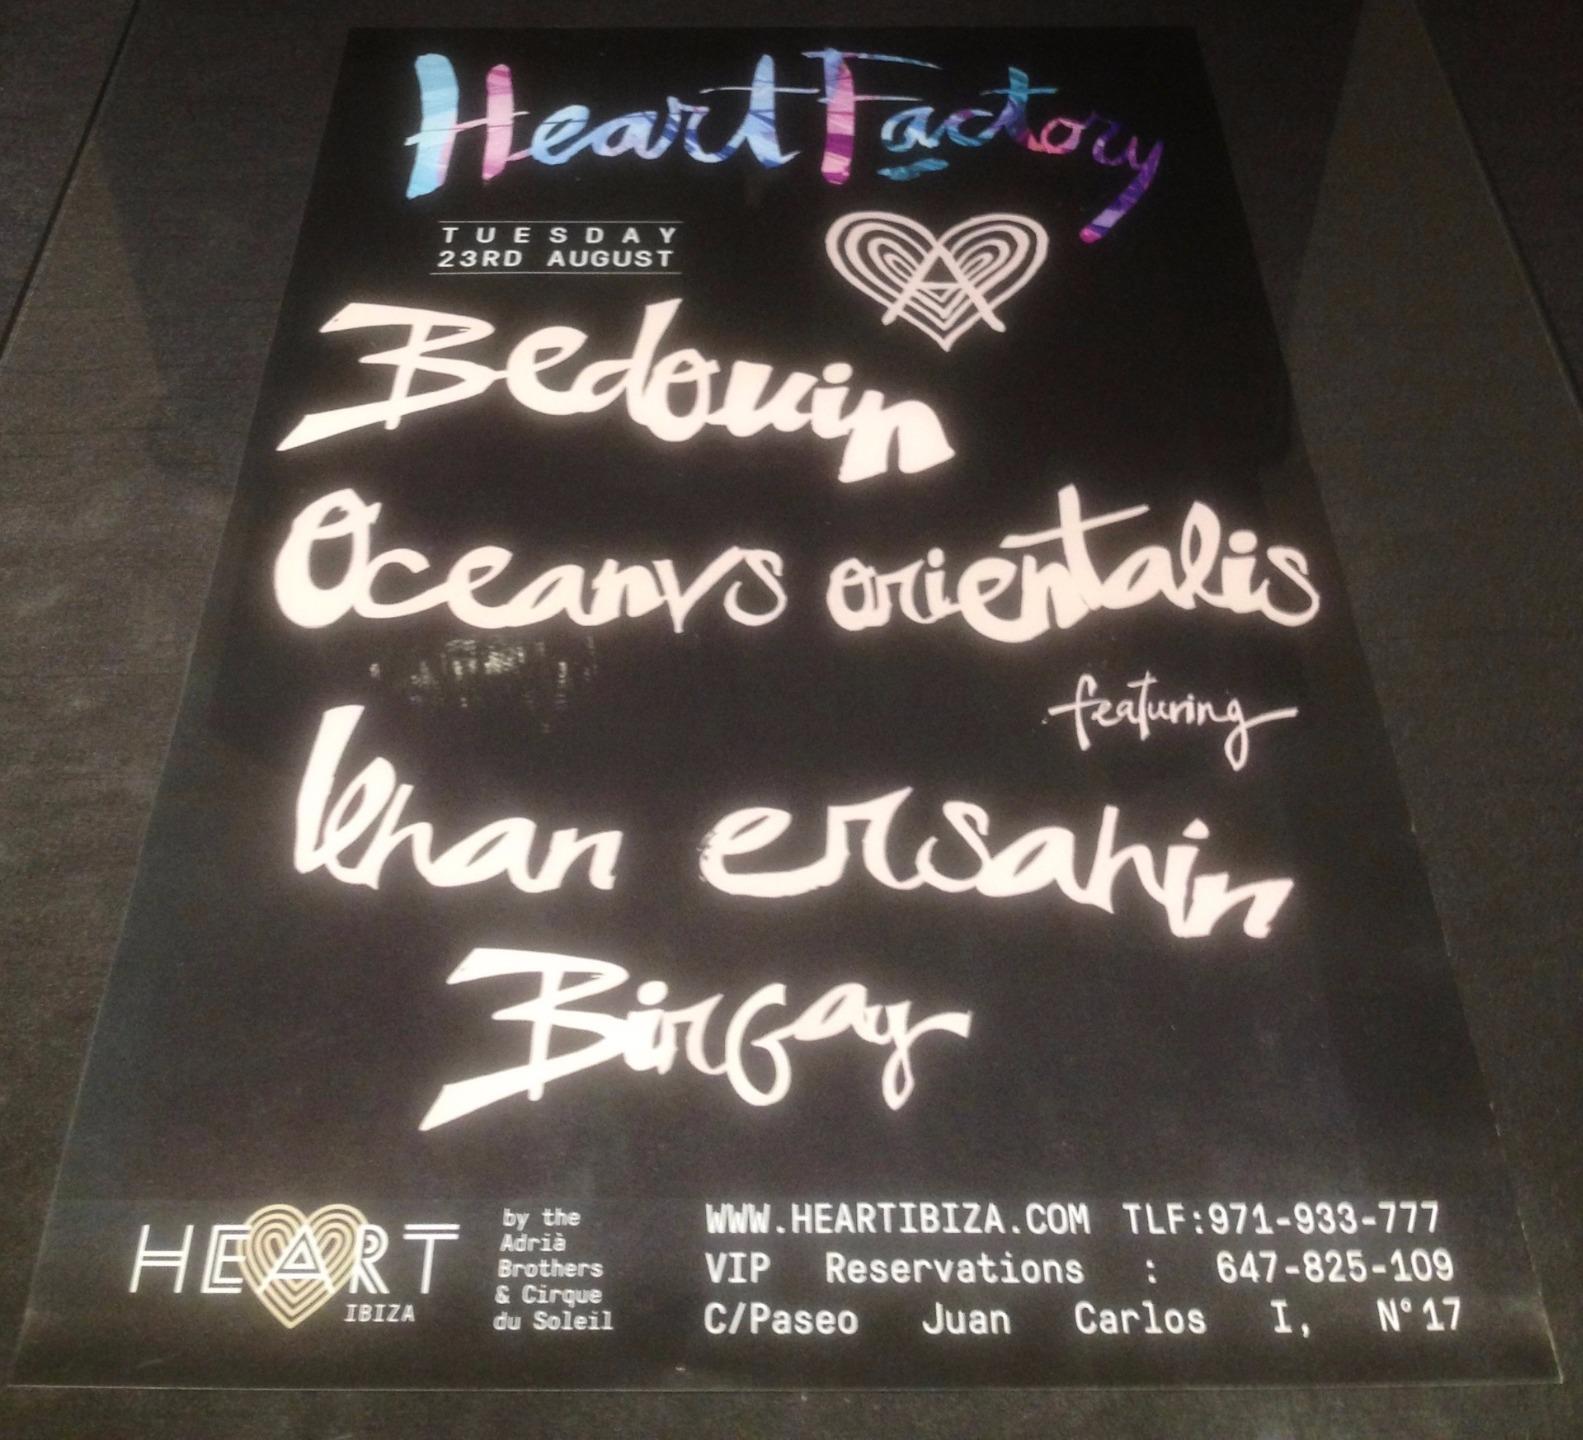 Heart Factory
TUESDAY
23RD AUGUST
Bedouin
Oceanvs orientalis
featuring
Ilhan ersahin
Birgay
HEART
IBIZA
by the
Adrià
Brothers
& Cirque
du Soleil
WWW.HEARTIBIZA.COM TLF:971-933-777
VIP Reservations : 647-825-109
C/Paseo Juan Carlos I, Nº17